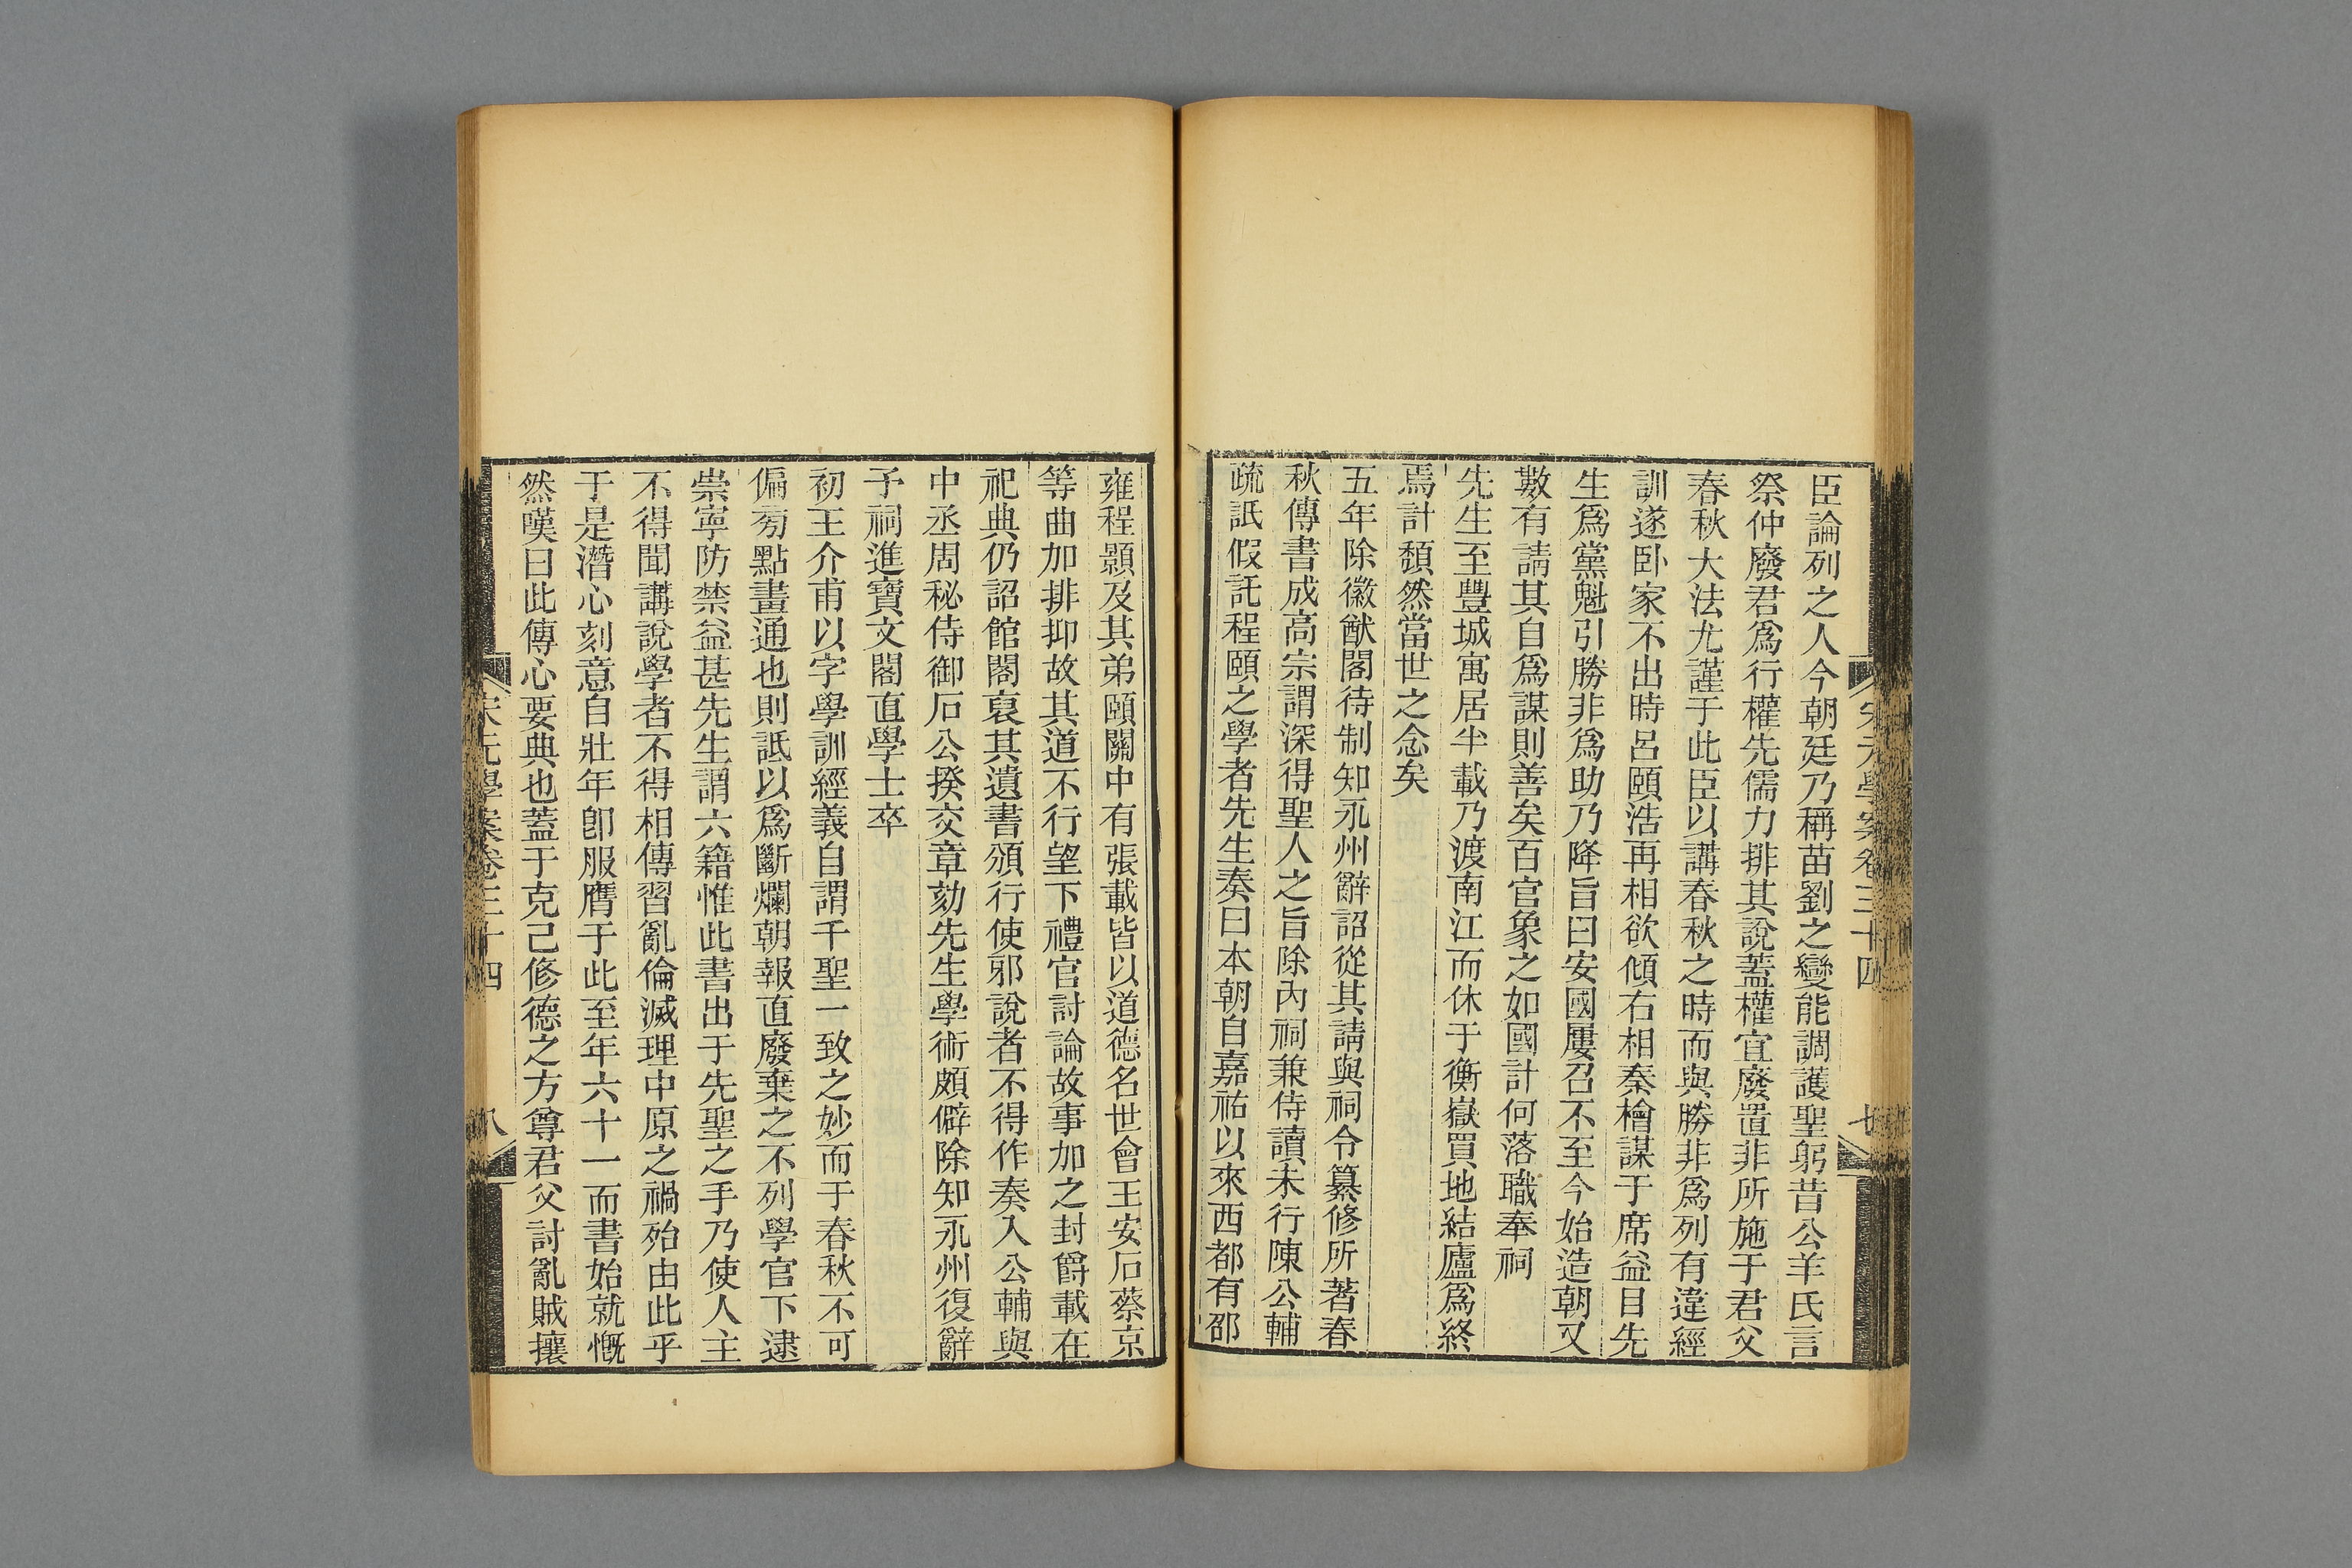 臣論列之人今朝廷乃稱苗劉之變能調護聖躬昔公羊氏言
祭仲廢君爲行權先儒力排其說蓋權宜廢置非所施于君父
春秋大法尤謹于此臣以講春秋之時而與勝非爲列有違經
訓遂臥家不出時呂頤浩再相欲傾右相秦檜謀于席益目先
生爲黨魁引勝非爲助乃降旨曰安國屢召不至今始造朝又
數有請其自爲謀則善矣百官象之如國計何落職奉祠
先生至豐城寓居半載乃渡南江而休于衡嶽買地結廬爲終
焉計頹然當世之念矣
五年除徽猷閣待制知永州辭詔從其請與祠令纂修所著春
秋傳書成高宗謂深得聖人之旨除內祠兼侍讀未行陳公輔
疏詆假託程頤之學者先生奏曰本朝自嘉祐以來西都有邵
雍程顥及其弟頤關中有張載皆以道德名世會王安石蔡京
等曲加排抑故其道不行望下禮官討論故事加之封爵載在
祀典仍詔館閣裒其遺書頒行使邪說者不得作奏入公輔與
中丞周秘侍御石公揆交章劾先生學術頗僻除知永州復辭
予祠進寶文閣直學士卒
初王介甫以字學訓經義自謂千聖一致之妙而于春秋不可
偏㫄點畫通也則詆以爲斷爛朝報直廢棄之不列學官下逮
崇寧防禁益甚先生謂六籍惟此書出于先聖之手乃使人主
不得聞講說學者不得相傳習亂倫滅理中原之禍殆由此乎
于是潛心刻意自壯年卽服膺于此至年六十一而書始就慨
然嘆曰此傳心要典也蓋于克己修德之方尊君父討亂賊攘
宋元學案卷三十四
八
宋元學案卷三十四
七